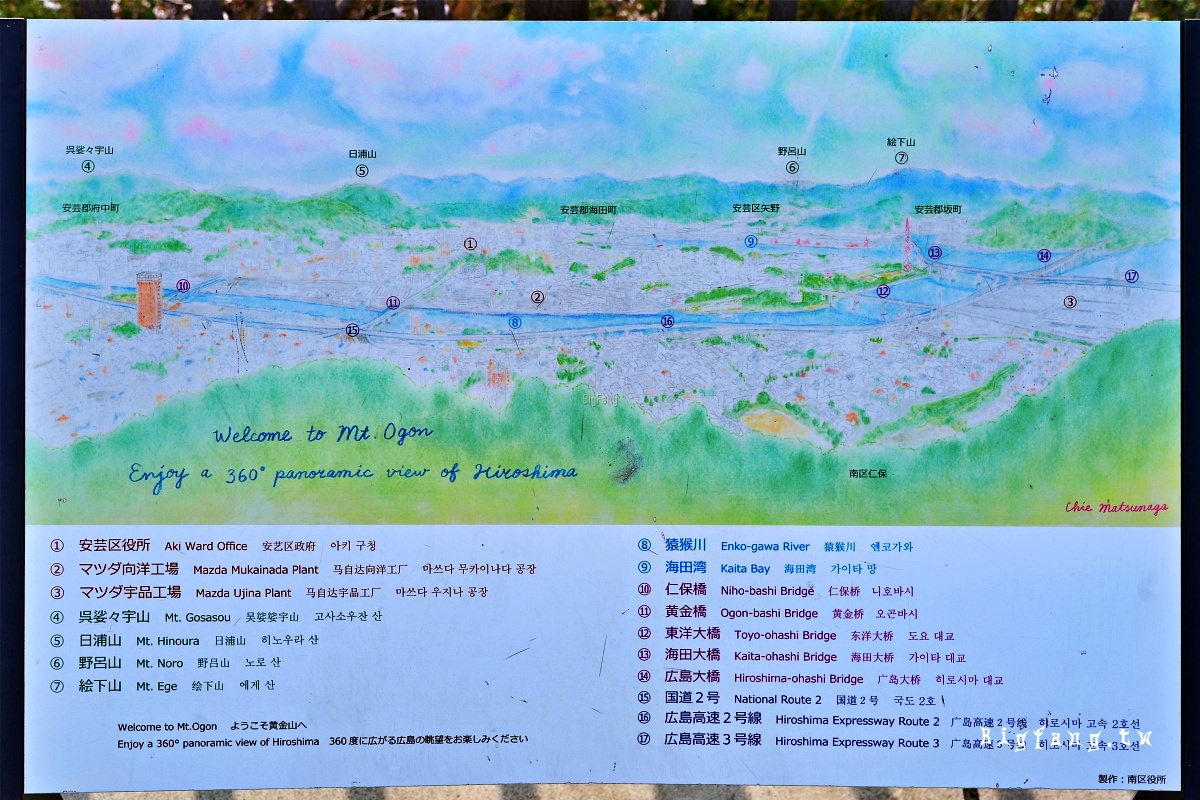 呉娑々宇山
④
日浦山
⑤
野呂山
⑥
絵下山
⑦
安芸郡府中町
安芸郡海田町
安芸区矢野
安芸郡坂町
①
⑨
⑬
⑭
⑰
⑩
⑪
②
⑫
③
⑮
⑧
⑯
BigFang
Welcome to Mt. Ogon
Enjoy a 360° panoramic view of Hiroshima
南区仁保
Chie Matsunaga
① 安芸区役所 Aki Ward Office 安艺区政府 아키 구청
② マツダ向洋工場 Mazda Mukainada Plant 马自达向洋工厂 마쓰다 무카이나다 공장
③ マツダ宇品工場 Mazda Ujina Plant 马自达宇品工厂 마쓰다 우지나 공장
④ 呉娑々宇山 Mt. Gosasou 吴娑娑宇山 고사소우잔 산
⑤ 日浦山 Mt. Hinoura 日浦山 히노우라 산
⑥ 野呂山 Mt. Noro 野吕山 노로 산
⑦ 絵下山 Mt. Ege 绘下山 에게 산
Welcome to Mt.Ogon ようこそ黄金山へ
Enjoy a 360° panoramic view of Hiroshima 360度に広がる広島の眺望をお楽しみください
⑧ 猿猴川 Enko-gawa River 猿猴川 엔코가와
⑨ 海田湾 Kaita Bay 海田湾 가이타 망
⑩ 仁保橋 Niho-bashi Bridge 仁保桥 니호바시
⑪ 黄金橋 Ogon-bashi Bridge 黄金桥 오곤바시
⑫ 東洋大橋 Toyo-ohashi Bridge 东洋大桥 도요 대교
⑬ 海田大橋 Kaita-ohashi Bridge 海田大桥 가이타 대교
⑭ 広島大橋 Hiroshima-ohashi Bridge 广岛大桥 히로시마 대교
⑮ 国道2号 National Route 2 国道2号 국도 2호
⑯ 広島高速2号線 Hiroshima Expressway Route 2 广岛高速2号线 히로시마 고속 2호선
⑰ 広島高速3号線 Hiroshima Expressway Route 3 广岛高速3号线 히로시마 고속 3호선
Bigfang.tw
製作：南区役所